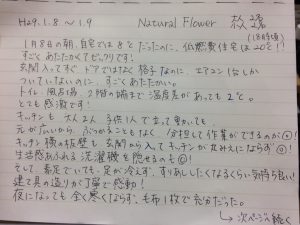 H29.1.8.～1.9 Natural Flower 枚瀆
(18時頃)
1月8日の朝、自宅では8℃だったのに、低燃費住宅は20℃!?
すごくあたたかくてビックリです!
玄関入ってすぐドアではなく格子なのに、エアコン1台しか
ついていないのに、すごくあたたかい。
トイレ、風呂場、2階の端まで温度差があっても2℃。
とても感激です!
キッチンも大人2人、子供1人で立って動かいても
元が広いから、ぶつかることもなく、分担して作業ができるのが◎!
キッチン横の板壁も、玄関から入ってキッチンが丸みえにならず◎!
生活感あふれる洗濯機を隠せるのも◎!
そして、素足でいても、足が冷えず、すりあししたくなるくらい気持ち良い!
建て具の造りが丁寧で感動!
夜になっても全く寒くならず、毛布1枚で充分だった。
→次ページへ続く